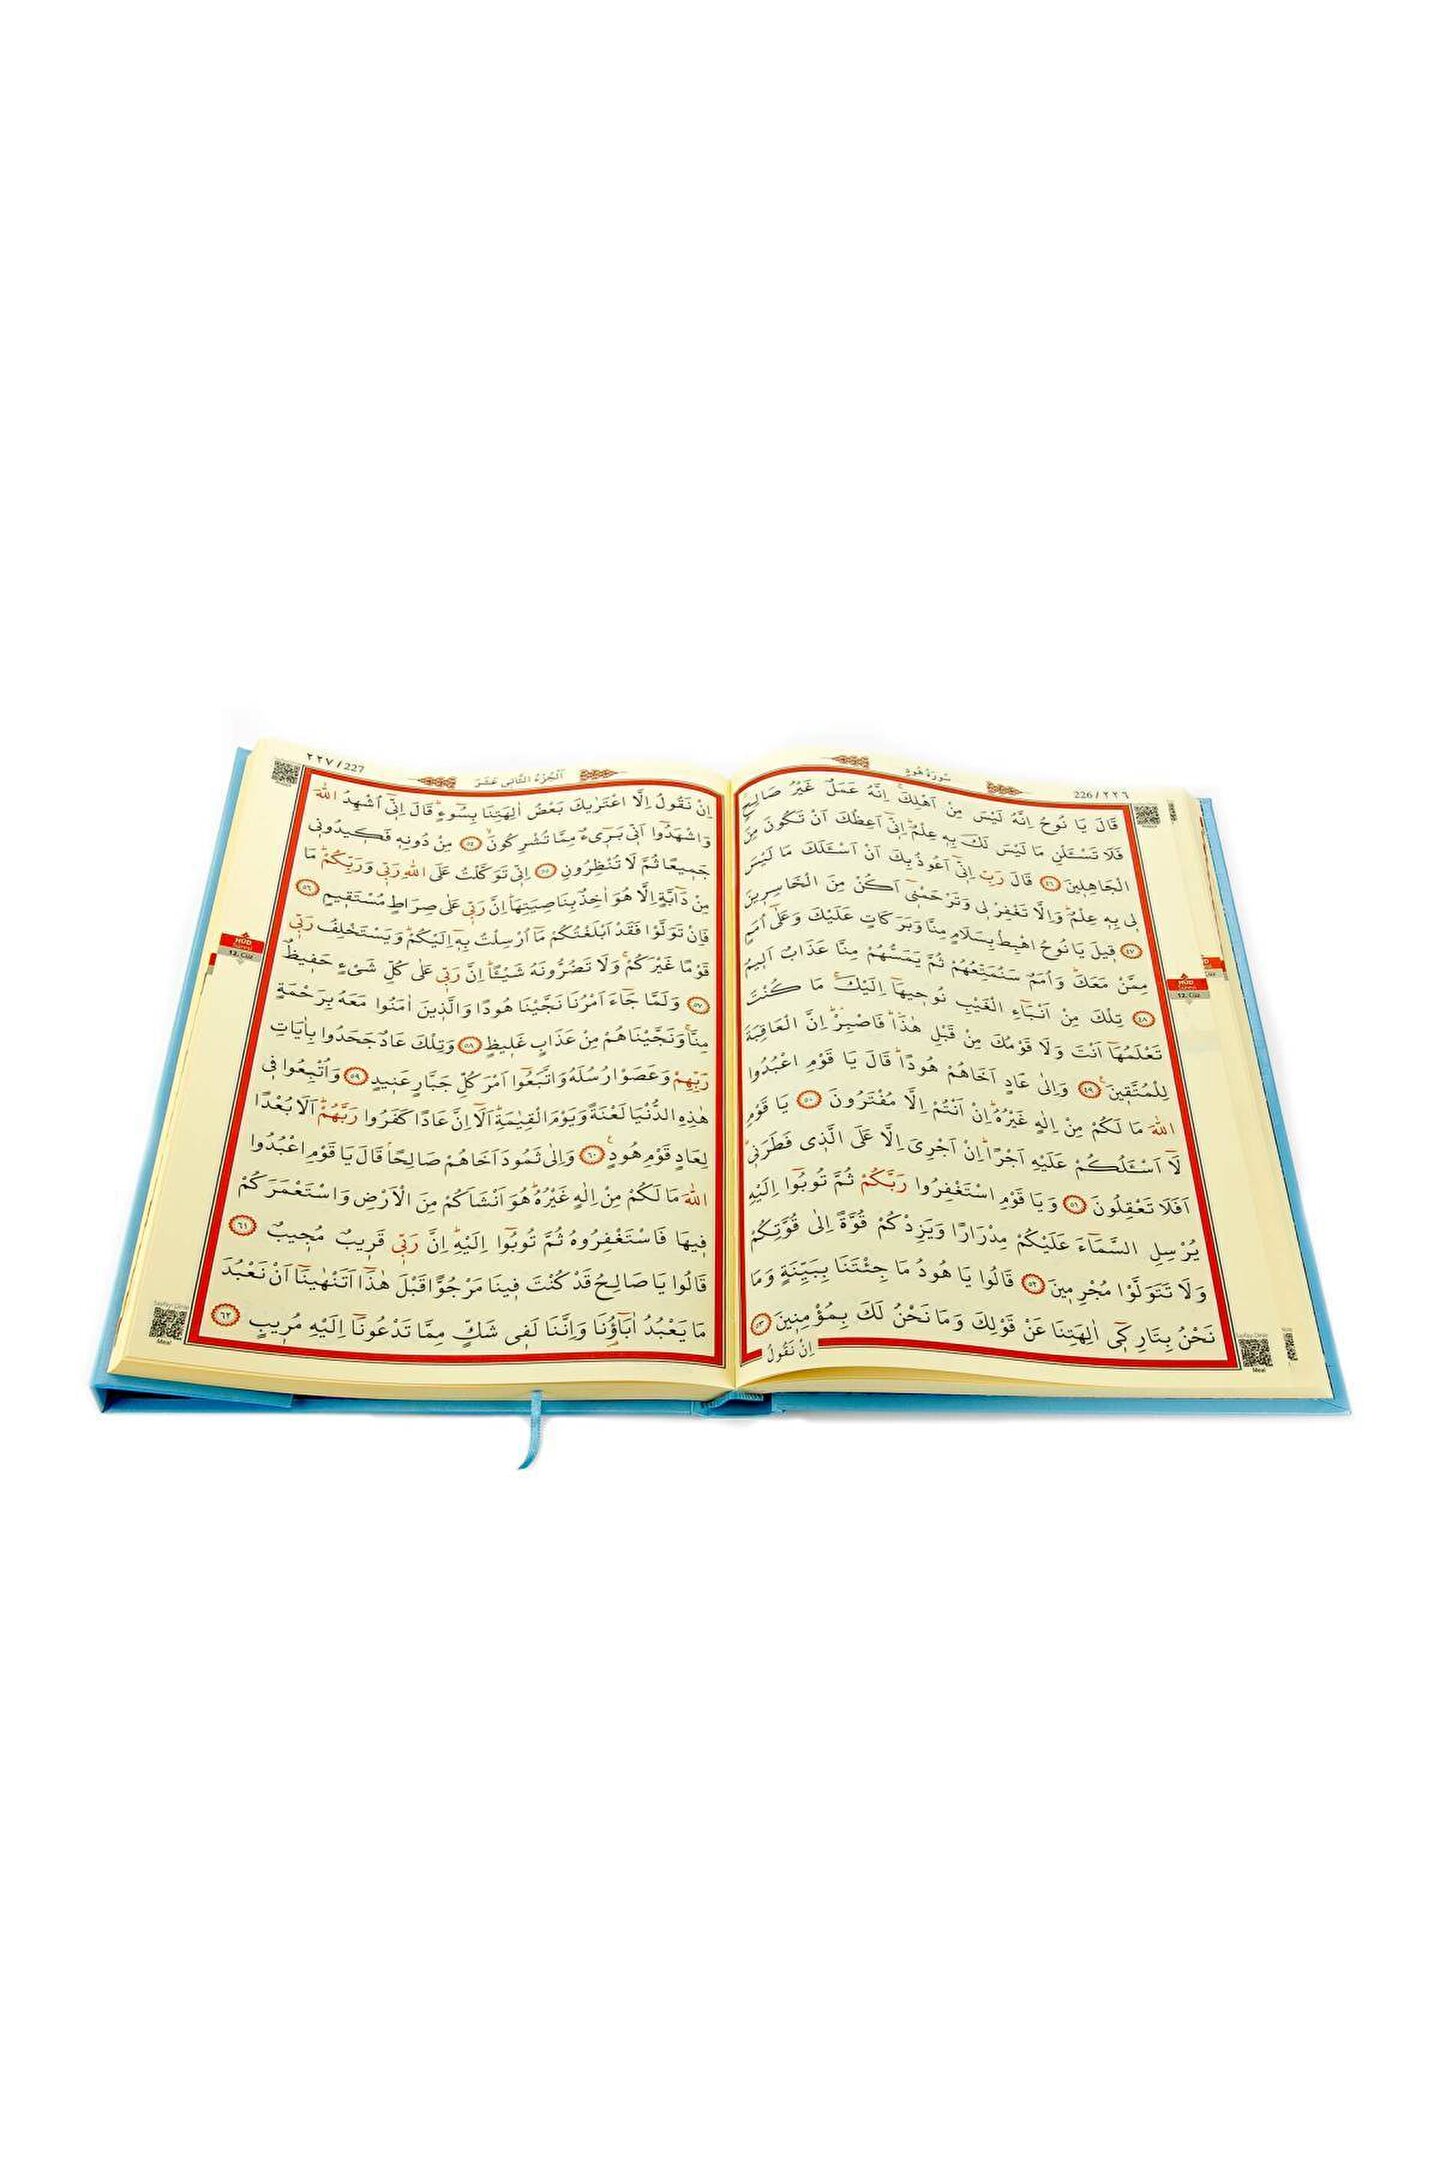 226 / ٢٢٦
سُورَةُ هُودٍ
قَالَ يَا نُوحُ اِنَّهُ لَيْسَ مِنْ اَهْلِكَۚ اِنَّهُ عَمَلٌ غَيْرُ صَالِحٍۗ
فَلَا تَسْـَٔلْنِ مَا لَيْسَ لَكَ بِه۪ عِلْمٌۜ اِنّ۪ٓي اَعِظُكَ اَنْ تَكُونَ مِنَ
الْجَاهِل۪ينَ ﴿٤٦﴾ قَالَ رَبِّ اِنّ۪ٓي اَعُوذُ بِكَ اَنْ اَسْـَٔلَكَ مَا لَيْسَ
ل۪ي بِه۪ عِلْمٌۜ وَاِلَّا تَغْفِرْ ل۪ي وَتَرْحَمْن۪ٓي اَكُنْ مِنَ الْخَاسِر۪ينَ
﴿٤٧﴾ ق۪يلَ يَا نُوحُ اهْبِطْ بِسَلَامٍ مِنَّا وَبَرَكَاتٍ عَلَيْكَ وَعَلٰٓى اُمَمٍ
مِمَّنْ مَعَكَۜ وَاُمَمٌ سَنُمَتِّعُهُمْ ثُمَّ يَمَسُّهُمْ مِنَّا عَذَابٌ اَل۪يمٌ
﴿٤٨﴾ تِلْكَ مِنْ اَنْبَٓاءِ الْغَيْبِ نُوح۪يهَٓا اِلَيْكَۚ مَا كُنْتَ
تَعْلَمُهَٓا اَنْتَ وَلَا قَوْمُكَ مِنْ قَبْلِ هٰذَاۜ فَاصْبِرْۜ اِنَّ الْعَاقِبَةَ
لِلْمُتَّق۪ينَ۟ ﴿٤٩﴾ وَاِلٰى عَادٍ اَخَاهُمْ هُودًاۜ قَالَ يَا قَوْمِ اعْبُدُوا
اللّٰهَ مَا لَكُمْ مِنْ اِلٰهٍ غَيْرُهُۜ اِنْ اَنْتُمْ اِلَّا مُفْتَرُونَ ﴿٥٠﴾ يَا قَوْمِ
لَٓا اَسْـَٔلُكُمْ عَلَيْهِ اَجْرًاۜ اِنْ اَجْرِيَ اِلَّا عَلَى الَّذ۪ي فَطَرَن۪يۜ
اَفَلَا تَعْقِلُونَ ﴿٥١﴾ وَيَا قَوْمِ اسْتَغْفِرُوا رَبَّكُمْ ثُمَّ تُوبُٓوا اِلَيْهِ
يُرْسِلِ السَّمَٓاءَ عَلَيْكُمْ مِدْرَارًا وَيَزِدْكُمْ قُوَّةً اِلٰى قُوَّتِكُمْ
وَلَا تَتَوَلَّوْا مُجْرِم۪ينَ ﴿٥٢﴾ قَالُوا يَا هُودُ مَا جِئْتَنَا بِبَيِّنَةٍ وَمَا
نَحْنُ بِتَارِك۪ٓي اٰلِهَتِنَا عَنْ قَوْلِكَ وَمَا نَحْنُ لَكَ بِمُؤْمِن۪ينَ ﴿٥٣﴾
اِنْ نَقُولُ
HÛD
12. Cüz
Meal
٢٢٧ / 227
اَلْجُزْءُ الثَّانِي عَشَرَ
اِنْ نَقُولُ اِلَّا اعْتَرٰيكَ بَعْضُ اٰلِهَتِنَا بِسُٓوءٍۜ قَالَ اِنّ۪ٓي اُشْهِدُ اللّٰهَ
وَاشْهَدُٓوا اَنّ۪ي بَر۪ٓيءٌ مِمَّا تُشْرِكُونَۙ ﴿٥٤﴾ مِنْ دُونِه۪ فَك۪يدُون۪ي
جَم۪يعًا ثُمَّ لَا تُنْظِرُونِ ﴿٥٥﴾ اِنّ۪ي تَوَكَّلْتُ عَلَى اللّٰهِ رَبّ۪ي وَرَبِّكُمْۜ مَا
مِنْ دَٓابَّةٍ اِلَّا هُوَ اٰخِذٌ بِنَاصِيَتِهَاۜ اِنَّ رَبّ۪ي عَلٰى صِرَاطٍ مُسْتَق۪يمٍ ﴿٥٦﴾
فَاِنْ تَوَلَّوْا فَقَدْ اَبْلَغْتُكُمْ مَٓا اُرْسِلْتُ بِه۪ٓ اِلَيْكُمْۜ وَيَسْتَخْلِفُ رَبّ۪ي
قَوْمًا غَيْرَكُمْۚ وَلَا تَضُرُّونَهُ شَيْـًٔاۜ اِنَّ رَبّ۪ي عَلٰى كُلِّ شَيْءٍ حَف۪يظٌ
﴿٥٧﴾ وَلَمَّا جَٓاءَ اَمْرُنَا نَجَّيْنَا هُودًا وَالَّذ۪ينَ اٰمَنُوا مَعَهُ بِرَحْمَةٍ
مِنَّاۚ وَنَجَّيْنَاهُمْ مِنْ عَذَابٍ غَل۪يظٍ ﴿٥٨﴾ وَتِلْكَ عَادٌ جَحَدُوا بِاٰيَاتِ
رَبِّهِمْ وَعَصَوْا رُسُلَهُ وَاتَّبَعُٓوا اَمْرَ كُلِّ جَبَّارٍ عَن۪يدٍ ﴿٥٩﴾ وَاُتْبِعُوا ف۪ي
هٰذِهِ الدُّنْيَا لَعْنَةً وَيَوْمَ الْقِيٰمَةِۜ اَلَٓا اِنَّ عَادًا كَفَرُوا رَبَّهُمْۜ اَلَا بُعْدًا
لِعَادٍ قَوْمِ هُودٍ۟ ﴿٦٠﴾ وَاِلٰى ثَمُودَ اَخَاهُمْ صَالِحًاۢ قَالَ يَا قَوْمِ اعْبُدُوا
اللّٰهَ مَا لَكُمْ مِنْ اِلٰهٍ غَيْرُهُۜ هُوَ اَنْشَاَكُمْ مِنَ الْاَرْضِ وَاسْتَعْمَرَكُمْ
ف۪يهَا فَاسْتَغْفِرُوهُ ثُمَّ تُوبُٓوا اِلَيْهِۜ اِنَّ رَبّ۪ي قَر۪يبٌ مُج۪يبٌ ﴿٦١﴾
قَالُوا يَا صَالِحُ قَدْ كُنْتَ ف۪ينَا مَرْجُوًّا قَبْلَ هٰذَٓا اَتَنْهٰينَٓا اَنْ نَعْبُدَ
مَا يَعْبُدُ اٰبَٓاؤُ۬نَا وَاِنَّنَا لَف۪ي شَكٍّ مِمَّا تَدْعُونَٓا اِلَيْهِ مُر۪يبٍ ﴿٦٢﴾
HÛD
12. Cüz
Meal